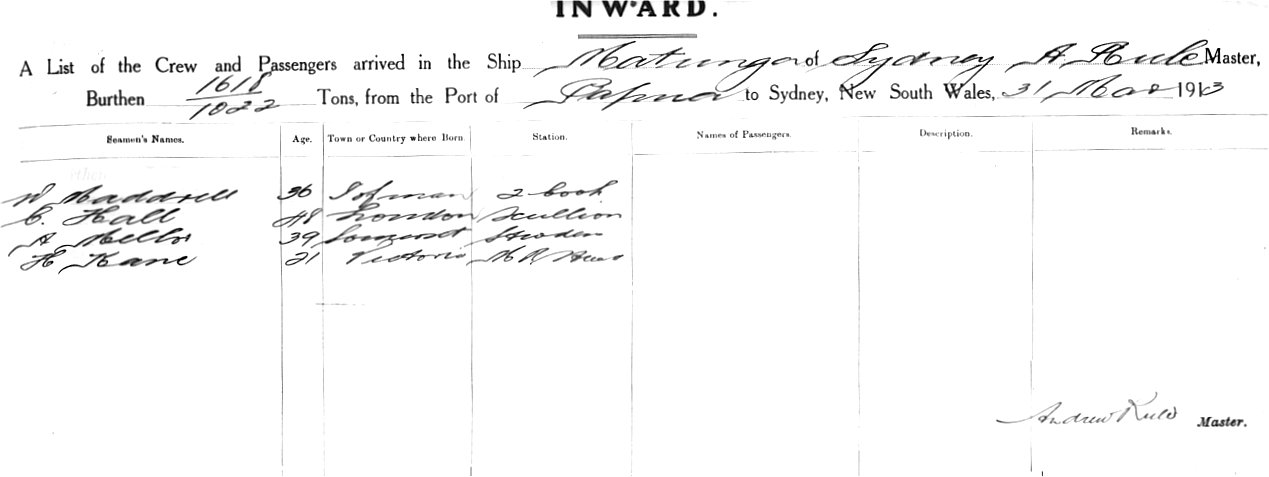 INWARD.
A List of the Crew and Passengers arrived in the Ship Matunga of Sydney A Rule Master,
Burthen 1618/1022 Tons, from the Port of Papua to Sydney, New South Wales, 31 Mar 1913
Seamen's Names. Age. Town or Country where Born. Station. Names of Passengers. Description. Remarks.
W Maddrell 36 I of man 2 Cook
C. Hall 48 London Scullion
A Mellor 39 Somerset
H Kane 21 Victoria
Andrew Rule Master.